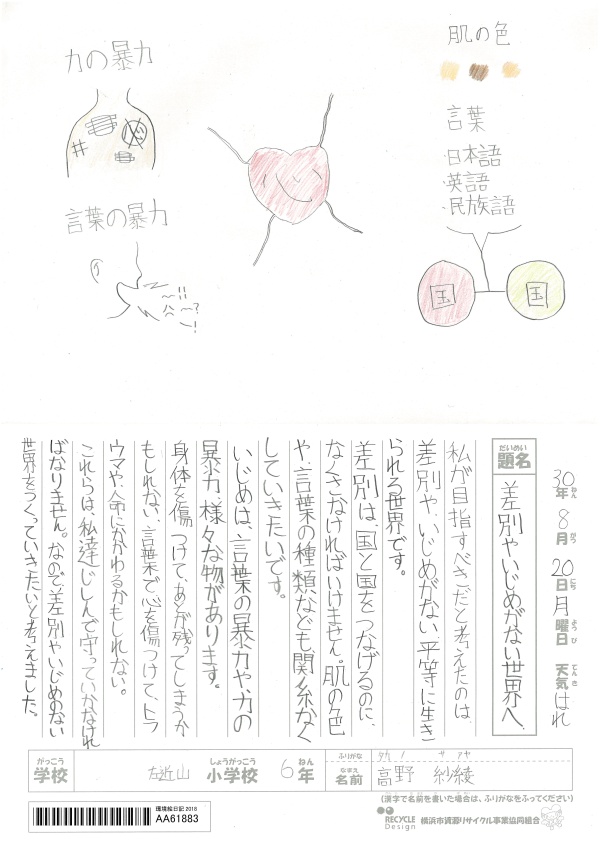 力の暴力
言葉の暴力
肌の色
言葉
・日本語
・英語
・民族語
国
国
30年ねん 8月がつ 20日にち 月曜日ようび 天気てんき はれ
だいめい
題名
差別やいじめがない世界へ
私が目指すべきだと考えたのは、
差別や、いじめがない、平等に生き
られる世界です。
差別は、国と国をつなげるのに、
なくさなければいけません。肌の色
や、言葉の種類なども、関係なく
していきたいです。
いじめは、言葉の暴力や、力の
暴力、様々な物があります。
身体を傷つけて、あとが残ってしまうか
もしれない、言葉で心を傷つけて、トラ
ウマや、命にかかわるかもしれない。
これらは、私達じしんで守っていかなけれ
ばなりません。なので差別やいじめのない
世界をつくっていきたいと考えました。
がっこう
学校
左近山
しょうがっこう
小学校
6年ねん
ふりがな
タカノ サアヤ
なまえ
名前
高野 紗綾
(漢字で名前を書いた場合は、ふりがなをふってください)
環境絵日記2018
AA61883
RECYCLE
Design
横浜市資源リサイクル事業協同組合